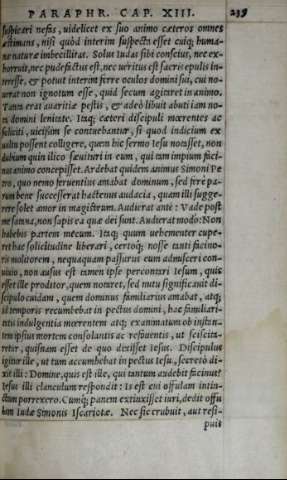 PARAPHR. CAP. XIII. 239
suspicari nefas, uidelicet ex suo animo cæteros omnes
æstimans, nisi quòd interim suspecta esset cuiq; huma-
næ naturæ imbecillitas. Solus Iudas sibi conscius, nec ex-
horruit, nec pudefactus est, nec ueritus est sacræ epulis in-
teresse, & potuit interim ferre oculos domini sui, cui no-
uerat non ignotum esse, quid secum agitaret in animo.
Tanta erat auaritiæ pestis, & adeò libuit abuti iam no-
ti domini lenitate. Itaq; cæteri discipuli mœrentes ac
soliciti, uicissim se contuebantur, si quod indicium ex
uultu possent colligere, quem hic sermo Iesu notasset, non
dubium quin ilico sæuituri in eum, qui tam impium faci-
nus animo concepisset. Ardebat quidem animus Simoni Pe
tro, quo nemo feruentius amabat dominum, sed ferè pa-
rum bene successerat hactenus audacia, quam illi sugge-
rere solet amor in magistrum. Audierat antè: Vade post
me satana, non sapis ea quæ dei sunt. Audierat modò: Non
habebis partem mecum. Itaq; quum uehementer cupe-
ret hac solicitudine liberari, certoq; nosse tanti facino-
ris molitorem, nequaquam passurus eum admisceri con-
uiuio, non ausus est tamen ipse percontari Iesum, quis
esset ille proditor, quem notaret, sed nutu significauit di-
scipulo cuidam, quem dominus familiarius amabat, atq;
id temporis recumbebat in pectus domini, hac familiari-
tatis indulgentia mœrentem atq; exanimatum ob instan-
tem ipsius mortem consolantis ac refouentis, ut sciscita-
retur, quisnam esset de quo dixisset Iesus. Discipulus
igitur ille, ut tum accumbebat in pectus Iesu, secretò di-
xit illi: Domine, quis est ille, qui tantum audebit facinus?
Iesus illi clanculum respondit: Is est cui offulam intin-
ctum porrexero. Cumq; panem extinxisset iuri, dedit offu
lam Iudæ Simonis Iscariotæ. Nec sic erubuit, aut resi-
puit